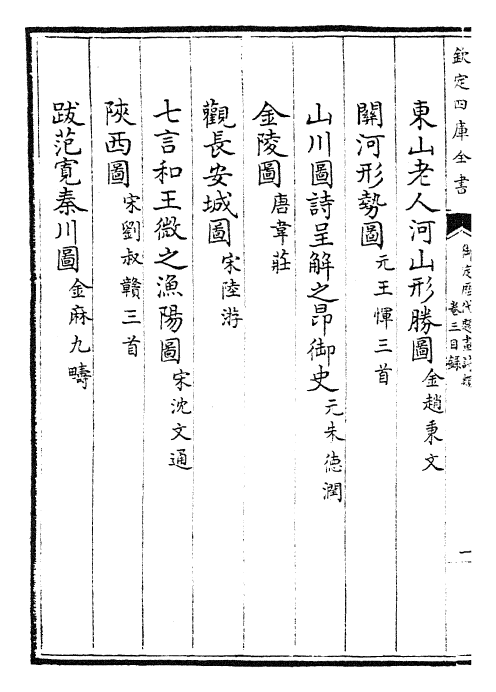 欽定四庫全書
御定歷代題畫詩類
卷三目錄
一
東山老人河山形勝圖 金趙秉文
關河形勢圖 元王惲三首
山川圖詩呈解之昂御史 元朱德潤
金陵圖 唐韋莊
觀長安城圖 宋陸游
七言和王微之漁陽圖 宋沈文通
陝西圖 宋劉叔贛三首
跋范寬秦川圖 金麻九疇